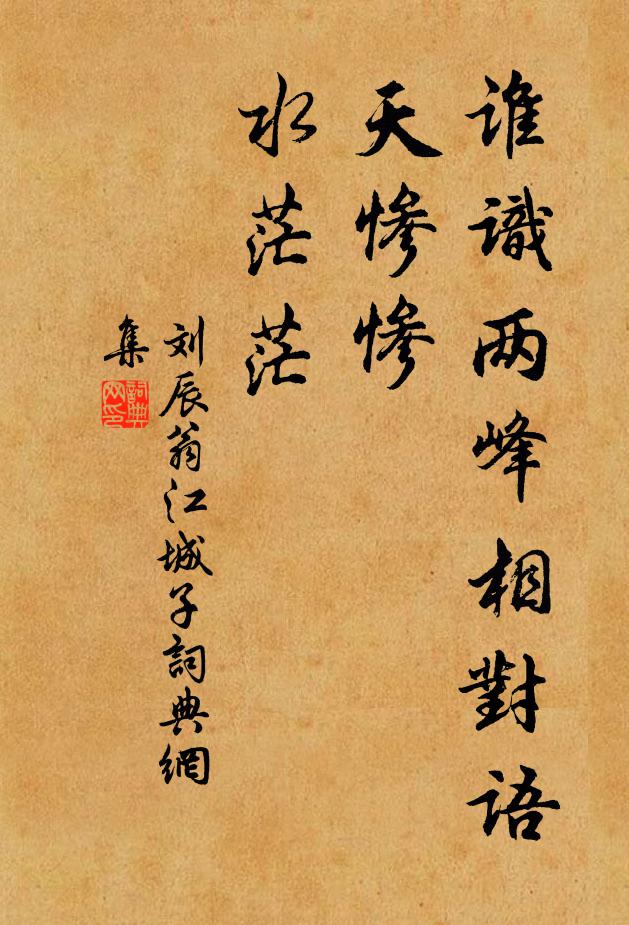 谁識两峰相對语
天惨惨
水茫茫
刘辰翁江城子詞典網
集
詞典網印